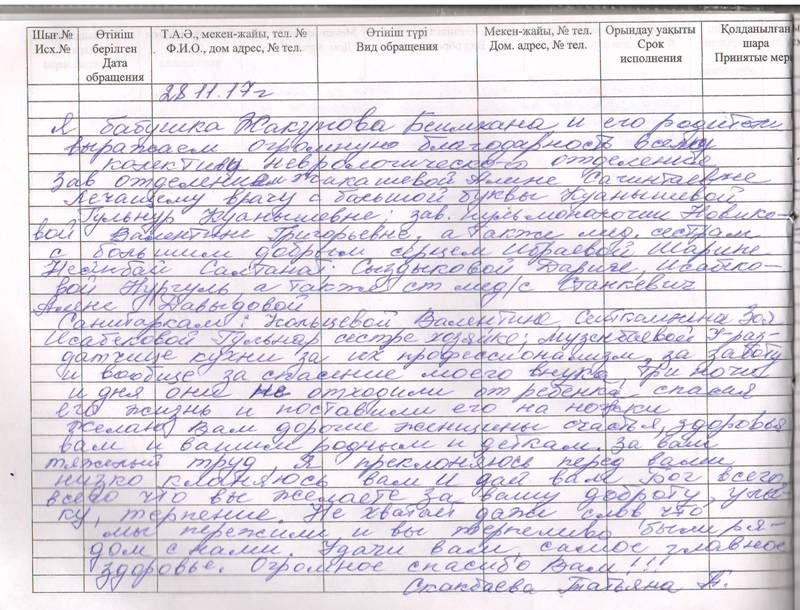 Шығ.№ Өтініш Т.А.Ә., мекен-жайы, тел. № Өтініш түрі Мекен-жайы, № тел. Орындау уақыты Қолданылған
Исх.№ берілген Ф.И.О., дом адрес, № тел. Вид обращения Дом. адрес, № тел. Срок шара
Дата исполнения Принятые мер
обращения
28.11.17г
Я бабушка Жакупова Бекжана и его родители
выражаем огромную благодарность всему
колективу неврологического отделение
Зав отделением Акашевой Алине Сагинтаевне
Лечащему врачу с большой буквы Куанышевой
Гульнур Куанышевне; зав. пульмонологии Новико-
вой Валентине Григорьевне, а также мед. сестрам
с большим добрым сердцем Ибраевой Шарипе
Несипбай Салтанат; Сыздыковой Дарише, Исабеко-
вой Нургуль а также ст мед/с Станкевич
Алене Давыдовой
Санитаркам: Кольцевой Валентине, Зоя
Исабековой Гульнар сестре хозяйке; Музенбаевой У раз-
датчице кухни за их профессионализм, за заботу
и вообще за спасение моего внука, три ночи
и дня они не отходили от ребенка, спасая
его жизнь и поставили его на ножки
Желаю Вам дорогие женщины счастья, здоровья
вам и вашим родным и деткам. За ваш
тяжелый труд, Я преклоняюсь перед вами
низко кланяюсь вам и дай вам Бог всего
всего что вы желаете за вашу доброту, улыб-
ку, терпение. Не хватает даже слов что
мы пережили и вы терпеливо были ря-
дом с нами. Удачи вам, самое главное
здоровье. Огромное спасибо Вам!!!
Скакбаева Татьяна П.